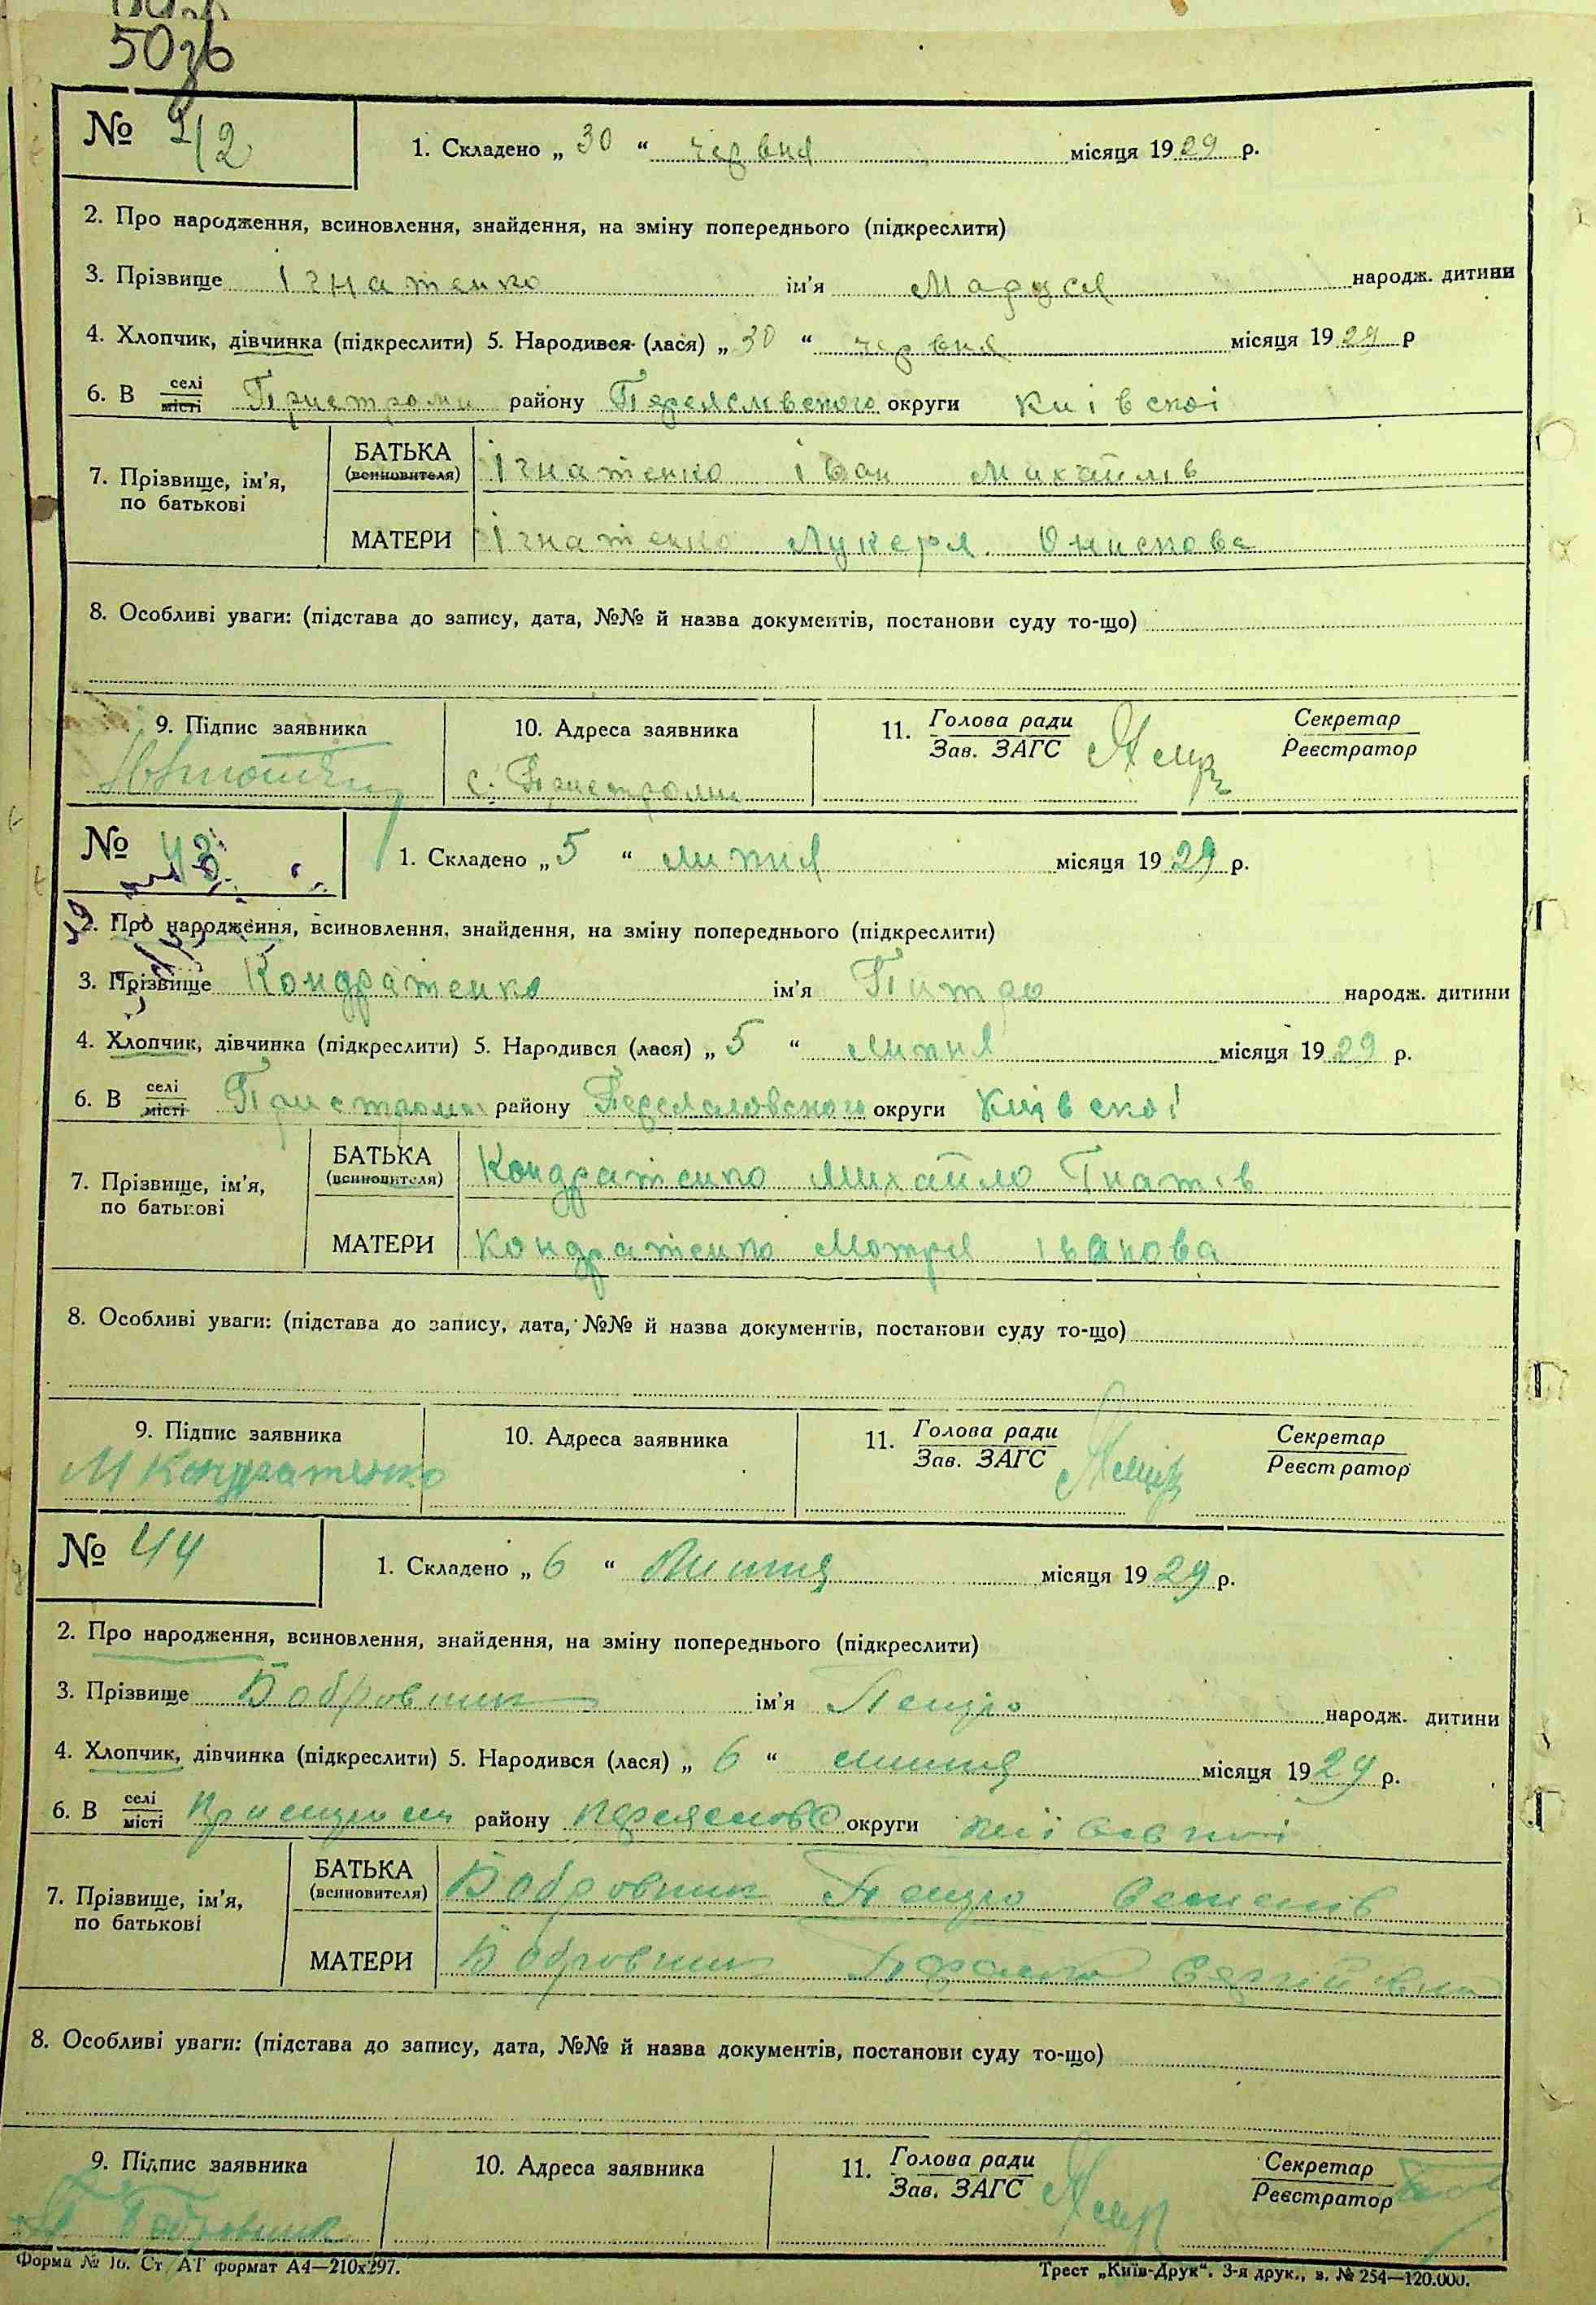 50зв
№ 42
1. Складено „ 30 “ червня місяця 1929 р.
2. Про народження, всиновлення, знайдення, на зміну попереднього (підкреслити)
3. Прізвище Ігнатенко ім'я Маруся народж. дитини
4. Хлопчик, дівчинка (підкреслити) 5. Народився (лася) „ 30 “ червня місяця 1929 р
6. В селі місті Пристроми району Переяславського округи Київскої
7. Прізвище, ім'я, по батькові
БАТЬКА (всиновителя) Ігнатенко Іван Михайлів
МАТЕРИ Ігнатенко Лукеря Онискова
8. Особливі уваги: (підстава до запису, дата, №№ й назва документів, постанови суду то-що)
9. Підпис заявника 10. Адреса заявника 11. Голова ради Зав. ЗАГС Секретар Реєстратор
с. Пристроми
№ 43
1. Складено „ 5 “ липня місяця 1929 р.
2. Про народження, всиновлення, знайдення, на зміну попереднього (підкреслити)
3. Прізвище Кондратенко ім'я народж. дитини
4. Хлопчик, дівчинка (підкреслити) 5. Народився (лася) „ 5 “ липня місяця 1929 р.
6. В селі місті Пристроми району Переяславського округи Київскої
7. Прізвище, ім'я, по батькові
БАТЬКА (всиновителя) Кондратенко Михайло Гнатів
МАТЕРИ Кондратенко Мотря Іванова
8. Особливі уваги: (підстава до запису, дата, №№ й назва документів, постанови суду то-що)
9. Підпис заявника 10. Адреса заявника 11. Голова ради Зав. ЗАГС Секретар Реєстратор
М Кондратенко
№ 44
1. Складено „ 6 “ Липня місяця 1929 р.
2. Про народження, всиновлення, знайдення, на зміну попереднього (підкреслити)
3. Прізвище Бобровник ім'я Петро народж. дитини
4. Хлопчик, дівчинка (підкреслити) 5. Народився (лася) „ 6 “ липня місяця 1929 р.
6. В селі місті району округи
7. Прізвище, ім'я, по батькові
БАТЬКА (всиновителя) Бобровник Петро Семенів
МАТЕРИ Бобровник Сергіївна
8. Особливі уваги: (підстава до запису, дата, №№ й назва документів, постанови суду то-що)
9. Підпис заявника 10. Адреса заявника 11. Голова ради Зав. ЗАГС Секретар Реєстратор
П Бобровник
Форма № 1б. Ст АТ формат А4—210х297. Трест „Київ-Друк“. 3-я друк., з. № 254—120.000.